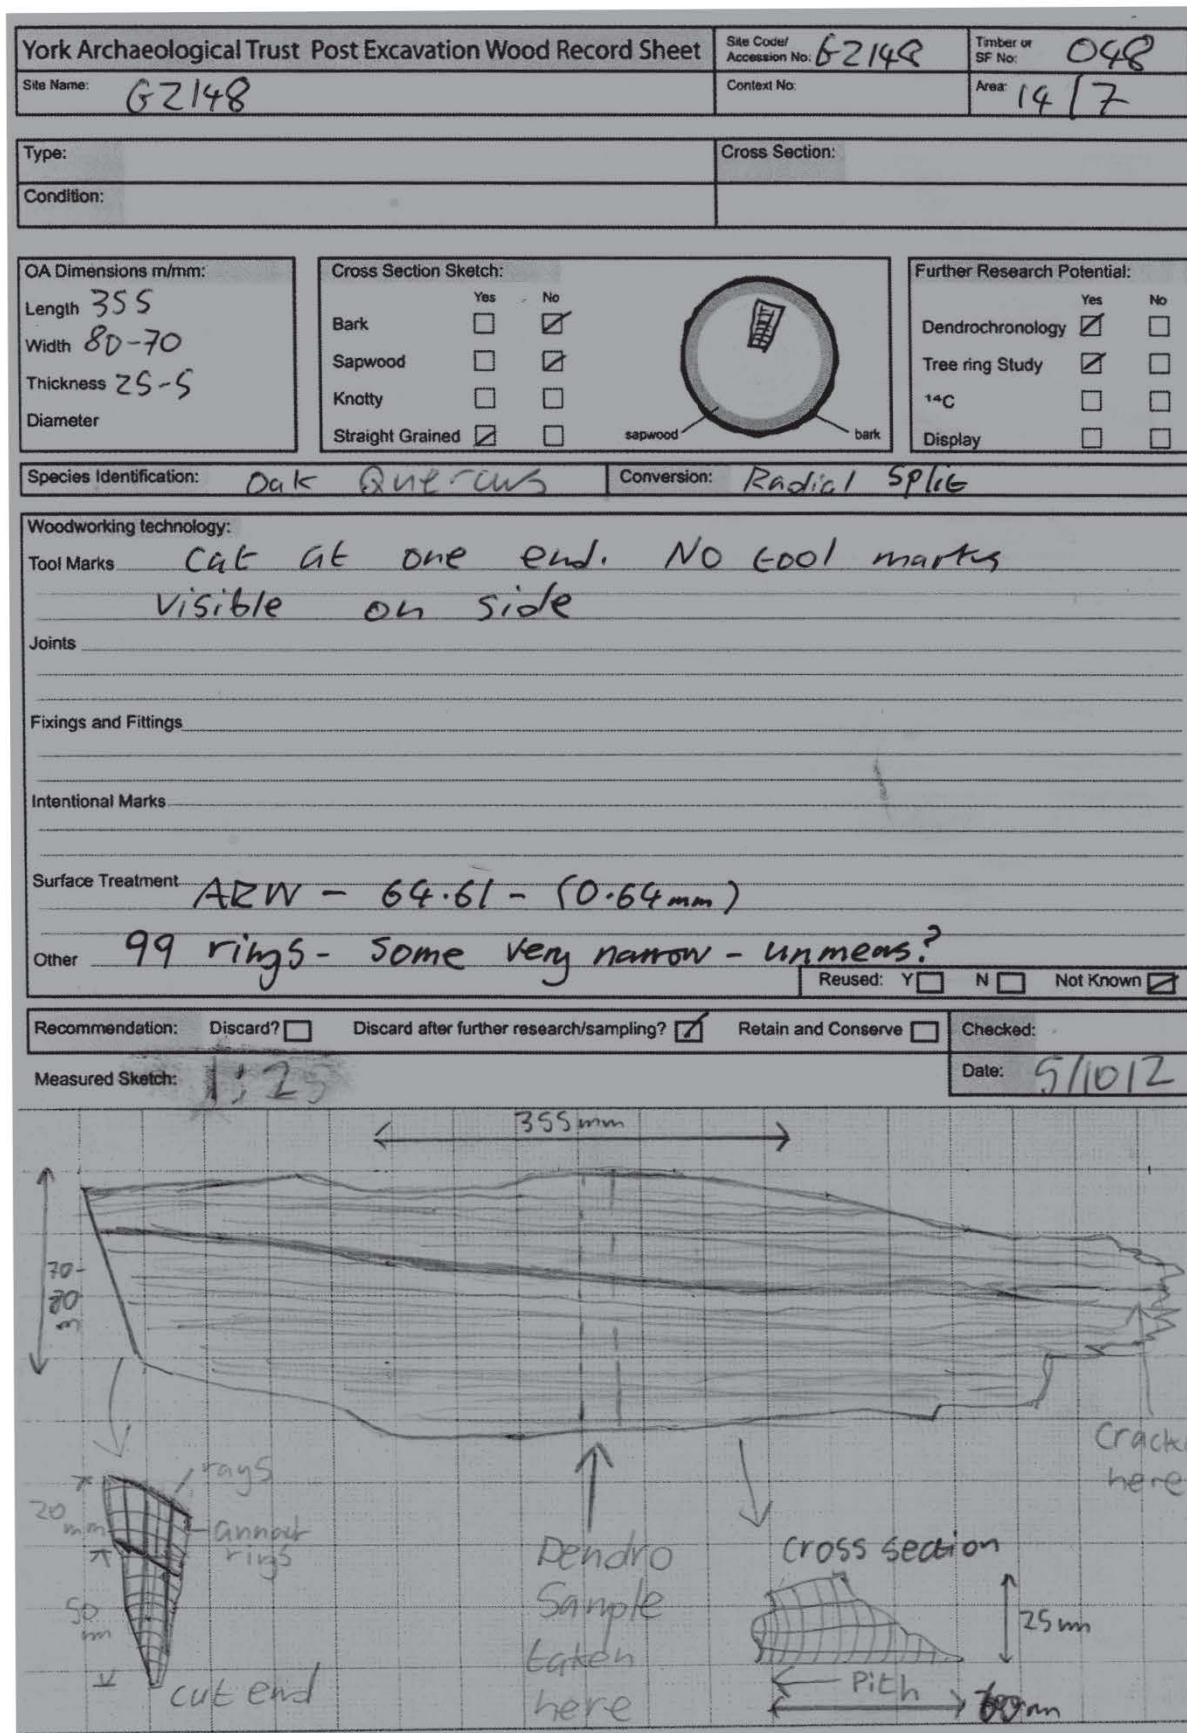 York Archaeological Trust Post Excavation Wood Record Sheet
Site Code/ Accession No: GZ148
Timber or SF No: 048
Site Name: GZ148
Context No:
Area: 14/7
Type:
Cross Section:
Condition:
OA Dimensions m/mm:
Length 355
Width 80-70
Thickness 25-5
Diameter
Cross Section Sketch:
Yes No
Bark
Sapwood
Knotty
Straight Grained
sapwood
bark
Further Research Potential:
Yes No
Dendrochronology
Tree ring Study
14C
Display
Species Identification: Oak Quercus
Conversion: Radial Split
Woodworking technology:
Tool Marks Cut at one end. No tool marks
visible on side
Joints
Fixings and Fittings
Intentional Marks
Surface Treatment ARW - 64.61 - (0.64mm)
Other 99 rings - some very narrow - unmeas?
Reused: Y N Not Known
Recommendation: Discard? Discard after further research/sampling? Retain and Conserve
Checked:
Measured Sketch: 1:25
Date: 5/10/12
355mm
70-
80
rays
20
mm
annual
rings
50
mm
cut end
Dendro
Sample
taken
here
Crack
here
cross section
25mm
Pith